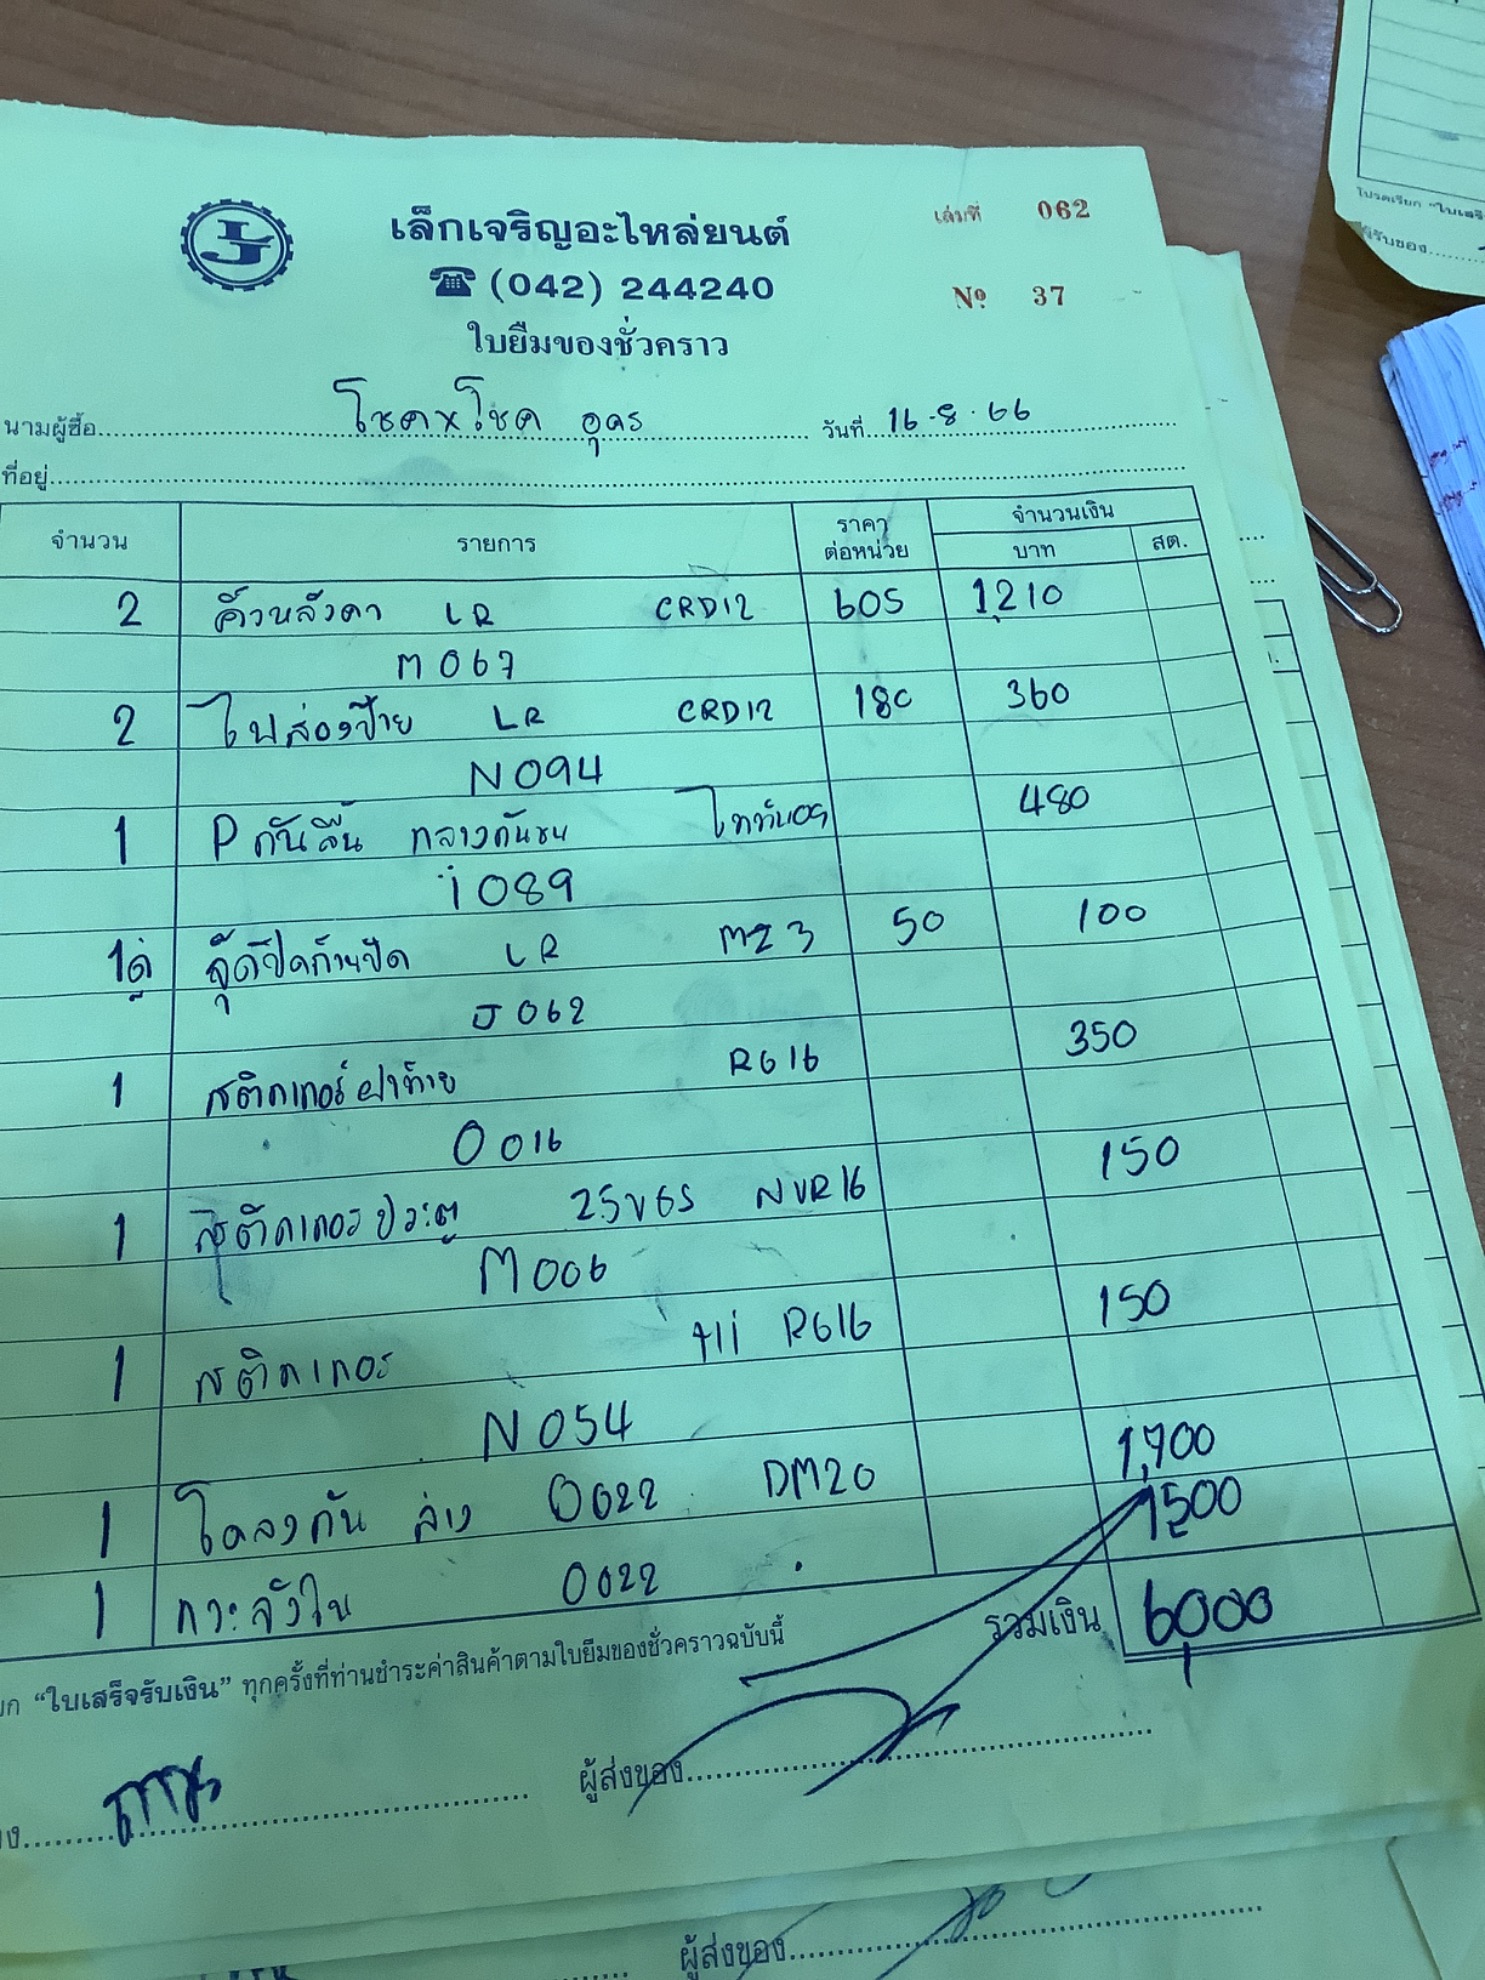 เล็กเจริญอะไหล่ยนต์
เล่มที่ 062
☎ (042) 244240
Nº 37
ใบยืมของชั่วคราว
นามผู้ซื้อ โชคxโชค อุดร วันที่ 16-8-66
ที่อยู่
จำนวน รายการ ราคาต่อหน่วย จำนวนเงิน บาท สต.
2 คิ้วหลังคา LR CRD12 605 1,210
M067
2 ไฟส่องป้าย LR CRD12 180 360
N094
1 P กันลื่น กลางกันชน ไททันอก 480
i089
1คู่ จุ๊ดปิดก้านปัด LR MZ3 50 100
J062
1 สติกเกอร์ฝาท้าย RG16 350
O016
1 สติกเกอร์ประตู 25VGS NVR16 150
M006
1 สติกเกอร Hi RG16 150
N054
1 โครงกัน ล่าง O022 DM20 1,700
1 กระจังใน O022 1,500
รวมเงิน 6,000
“ใบเสร็จรับเงิน” ทุกครั้งที่ท่านชำระค่าสินค้าตามใบยืมของชั่วคราวฉบับนี้
ผู้ส่งของ
ผู้ส่งของ
โปรดเรียก “ใบเสร็
ผู้รับของ